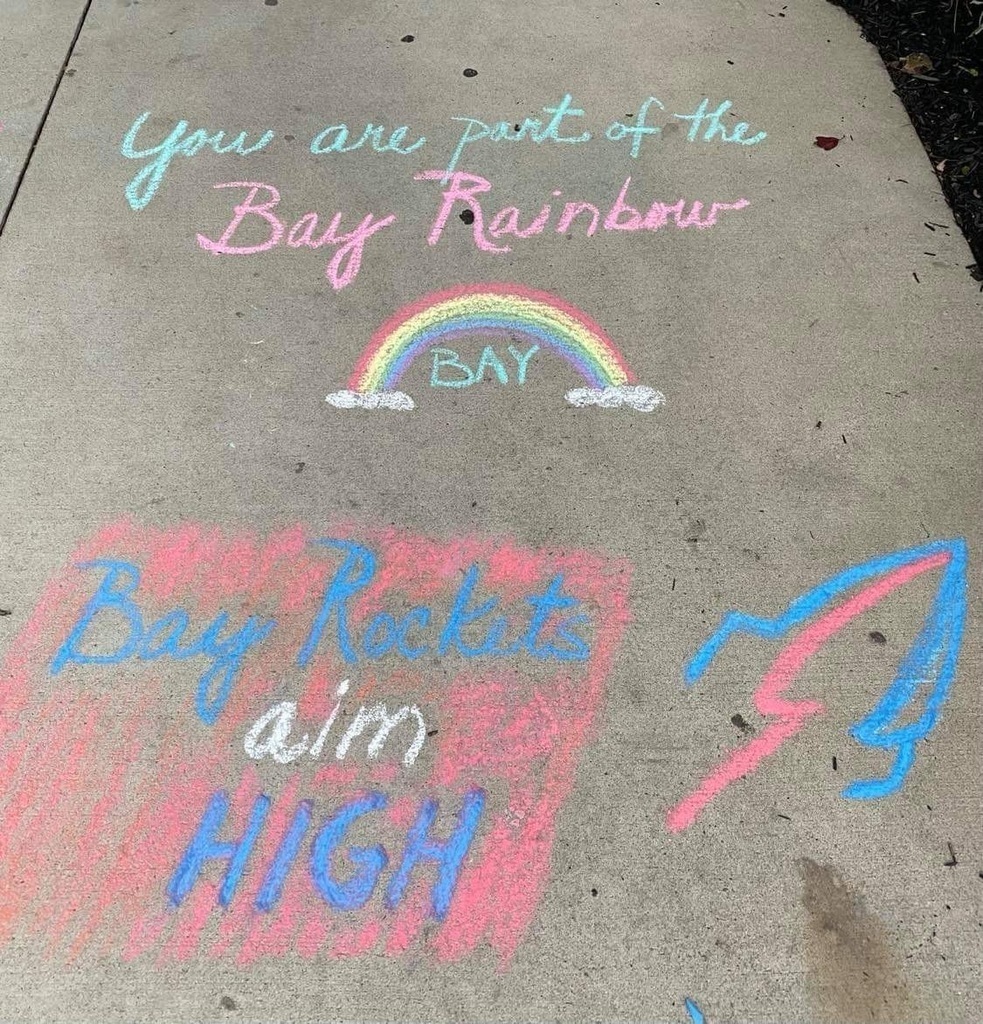 You are part of the
Bay Rainbow
BAY
Bay Rockets
aim
HIGH